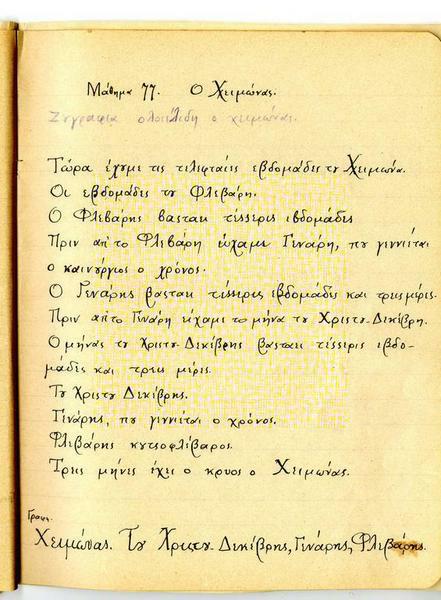 Μάθημα 77. Ο Χειμώνας.
Ζυγραφια ο χειμώνας.
Τώρα έχυμε τις τελεφταίες εβδομάδες τυ Χειμώνα.
Οι εβδομάδες τυ Φλεβάρη.
Ο Φλεβάρης βασταει τέσσερις εβδομάδες
Πριν απ' το Φλεβάρη είχαμε Γενάρη, πυ γεννιέται
ο καινύργιος ο χρόνος.
Ο Γενάρης βασταει τέσσερις εβδομάδες και τρεις μέρες.
Πριν απ' το Γενάρη είχαμε το μήνα τυ Χριστυ-Δεκέβρη.
Ο μήνας τυ Χριστυ-Δεκέβρης βασταει τέσσερις εβδο-
μάδες και τρεις μέρες.
Τυ Χριστυ Δεκέβρης.
Γενάρης, πυ γεννιέται ο χρόνος.
Φλεβάρης κυτσοφλέβαρος.
Τρεις μήνες έχει ο κρυος ο Χειμώνας.
Γραφη.
Χειμώνας. Τυ Χριστυ-Δεκέβρης, Γενάρης, Φλεβάρης.